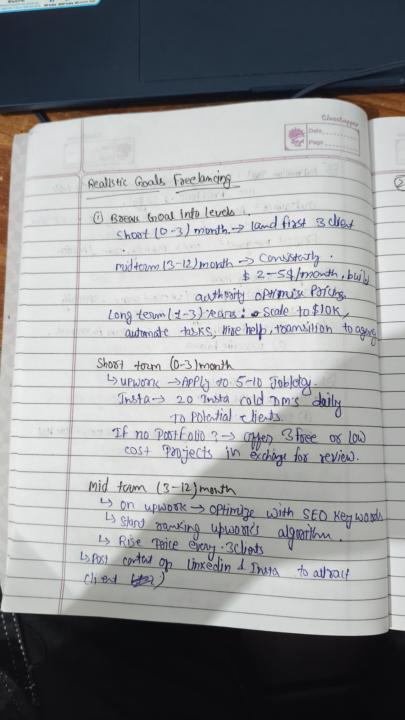 Classmate
Date
Page
Realistic Goals Freelancing
① Break Goal Into levels.
Short (0-3) month → land first 3 client
midterm (3-12) month → Consistantly.
$ 2-5$/month, build
authority optimize Pricing.
Long term (1-3) years: Scale to $10K,
automate tasks, Hire help, transition to agency
Short term (0-3) month
↳ upwork → Apply to 5-10 Job/day.
Insta → 20 Insta cold DM's daily
To Potential clients.
If no Portfolio? → offer 3 free or low
cost Projects in exchage for review.
Mid term (3-12) month
↳ on upwork → optimize with SEO Keywords
↳ Start ranking upwork's algorithm.
↳ Rise Price every 3 clients
↳ Post on Linkedin & Insta to attract
Client